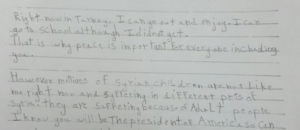 Right now in Turkey, I can go out and enjoy. I can
go to school although I didn't yet.
That is why peace is important for everyone including
you.
However millions of Syrian children are not like
me right now and suffering in different parts of
Syria. They are suffering because of Adult people.
I know you will be the president of America, so can